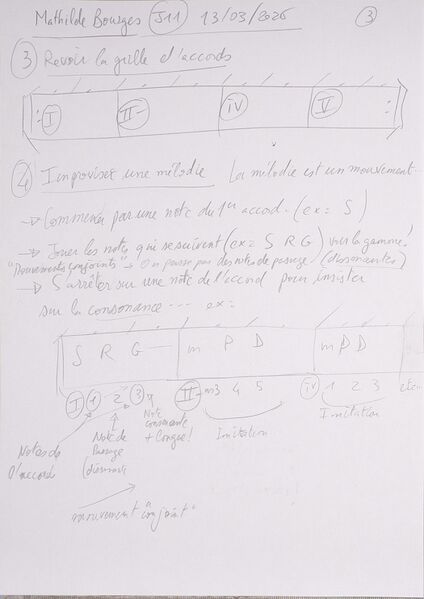 Mathilde Bourges J11 13/03/2026 3
3 Revoir la grille d'accords
I II- IV V
4 Improviser une mélodie La mélodie est un mouvement...
→ Commencer par une note du 1er accord. (ex= S)
→ Jouer les note qui se suivent (ex= S R G) voir la gamme!
"Mouvements conjoints" → On passe par des notes de passage (dissonantes)
→ S'arrêter sur une note de l'accord pour insister
sur la consonance ... ex=
S R G m P D m P D
I 1 2 3 II- m3 4 5 IV 1 2 3
Notes de l'accord
Note de Passage
Note consonante + longue!
Imitation
Imitation
mouvement "conjoint"